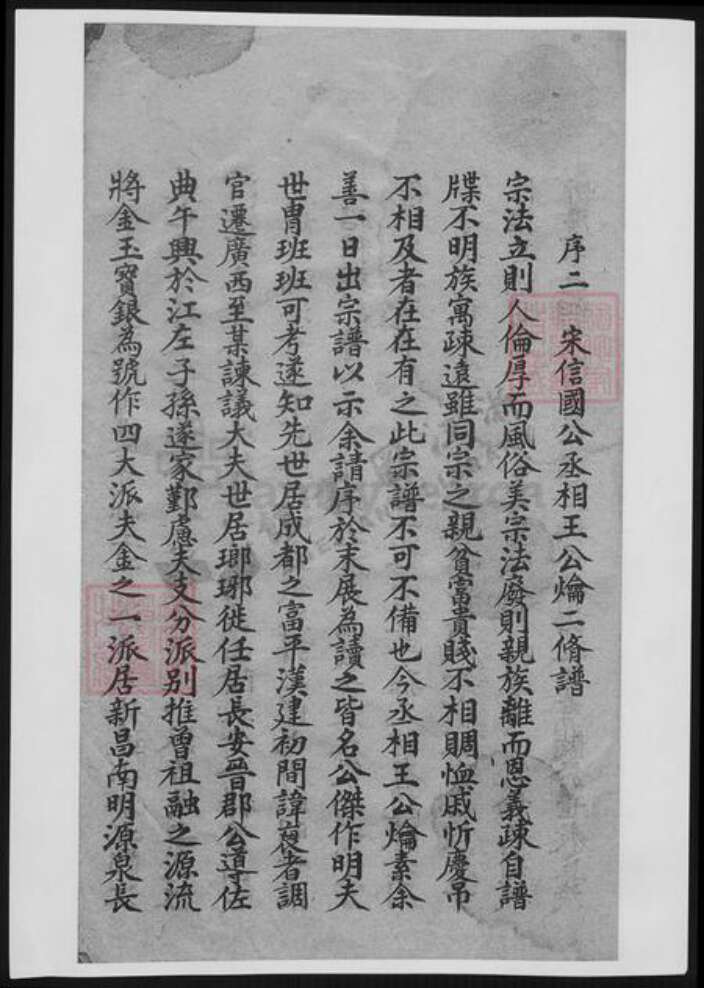 序二 宋信國公丞相王公爚二脩譜
宗法立則人倫厚而風俗美宗法廢則親族離而恩義疎自譜
牒不明族寓疎遠雖同宗之親貧富貴賤不相賙恤戚忻慶吊
不相及者在在有之此宗譜不可不備也今丞相王公爚素余
善一日出宗譜以示余請序於末展為讀之皆名公傑作明夫
世冑班班可考遂知先世居成都之富平漢建初間諱裒者調
官遷廣西至某諫議大夫世居瑯琊徙任居長安晉郡公導佐
典午興於江左子孫遂家鄞慮夫支分派別推曾祖融之源流
將金玉寶銀為號作四大派夫金之一派居新昌南明源泉長